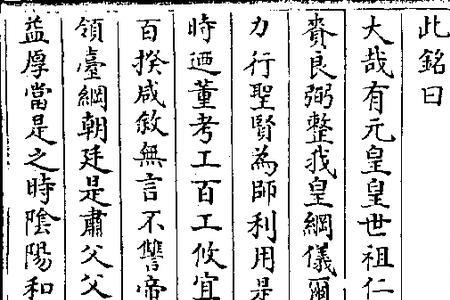 此銘曰
大哉有元皇皇世祖仁
賚良弼整我皇綱儀爾
力行聖賢為師利用是
時迺董考工百工攸宜
百揆咸敘無言不讐帝
領臺綱朝廷是肅父父
益厚當是之時陰陽和